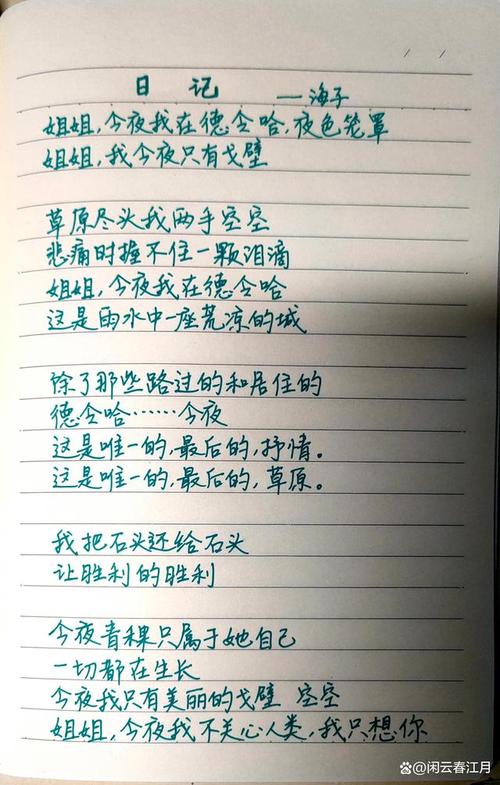 日记
——海子
姐姐,今夜我在德令哈,夜色笼罩
姐姐,我今夜只有戈壁
草原尽头我两手空空
悲痛时握不住一颗泪滴
姐姐,今夜我在德令哈
这是雨水中一座荒凉的城
除了那些路过的和居住的
德令哈……今夜
这是唯一的,最后的,抒情。
这是唯一的,最后的,草原。
我把石头还给石头
让胜利的胜利
今夜青稞只属于她自己
一切都在生长
今夜我只有美丽的戈壁 空空
姐姐,今夜我不关心人类,我只想你
@闲云春江月